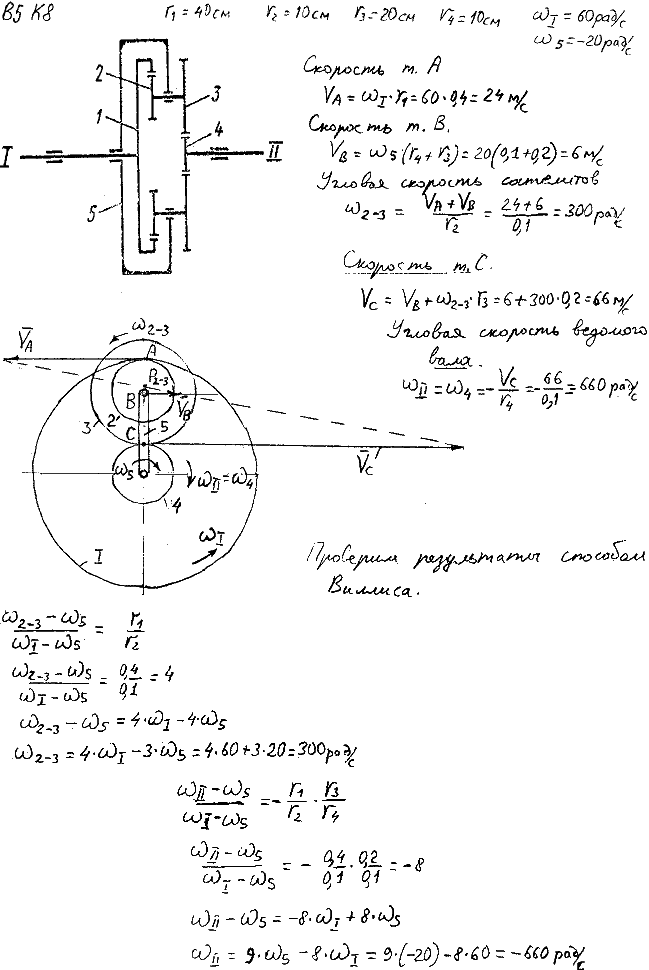 В5 К8 r₁ = 40см r₂ = 10см r₃ = 20см r₄ = 10см ω_I = 60рад/с
ω₅ = -20рад/с
Скорость т. А
V_A = ω_I · r₁ = 60 · 0,4 = 24 м/с
Скорость т. В.
V_B = ω₅(r₄ + r₃) = 20(0,1+0,2) = 6 м/с
Угловая скорость
ω₂₋₃ = (V_A + V_B)/r₂ = (24+6)/0,1 = 300 рад/с
Скорость т. С.
V_C = V_B + ω₂₋₃ · r₃ = 6 + 300 · 0,2 = 66 м/с
Угловая скорость ведомого
вала.
ω_II = ω₄ = -V_C/r₄ = -66/0,1 = 660 рад/с
2
3
1
4
I
II
5
ω₂₋₃
V̄_A
A
P₂₋₃
B
V̄_B
3
2'
5
C
V̄_C
ω₅
ω_II = ω₄
4
ω_I
I
Проверим результаты способом
Виллиса.
(ω₂₋₃ - ω₅)/(ω_I - ω₅) = r₁/r₂
(ω₂₋₃ - ω₅)/(ω_I - ω₅) = 0,4/0,1 = 4
ω₂₋₃ - ω₅ = 4 · ω_I - 4 · ω₅
ω₂₋₃ = 4 · ω_I - 3 · ω₅ = 4 · 60 + 3 · 20 = 300 рад/с
(ω_II - ω₅)/(ω_I - ω₅) = - r₁/r₂ · r₃/r₄
(ω_II - ω₅)/(ω_I - ω₅) = - 0,4/0,1 · 0,2/0,1 = -8
ω_II - ω₅ = -8 · ω_I + 8 · ω₅
ω_II = 9 · ω₅ - 8 · ω_I = 9 · (-20) - 8 · 60 = -660 рад/с